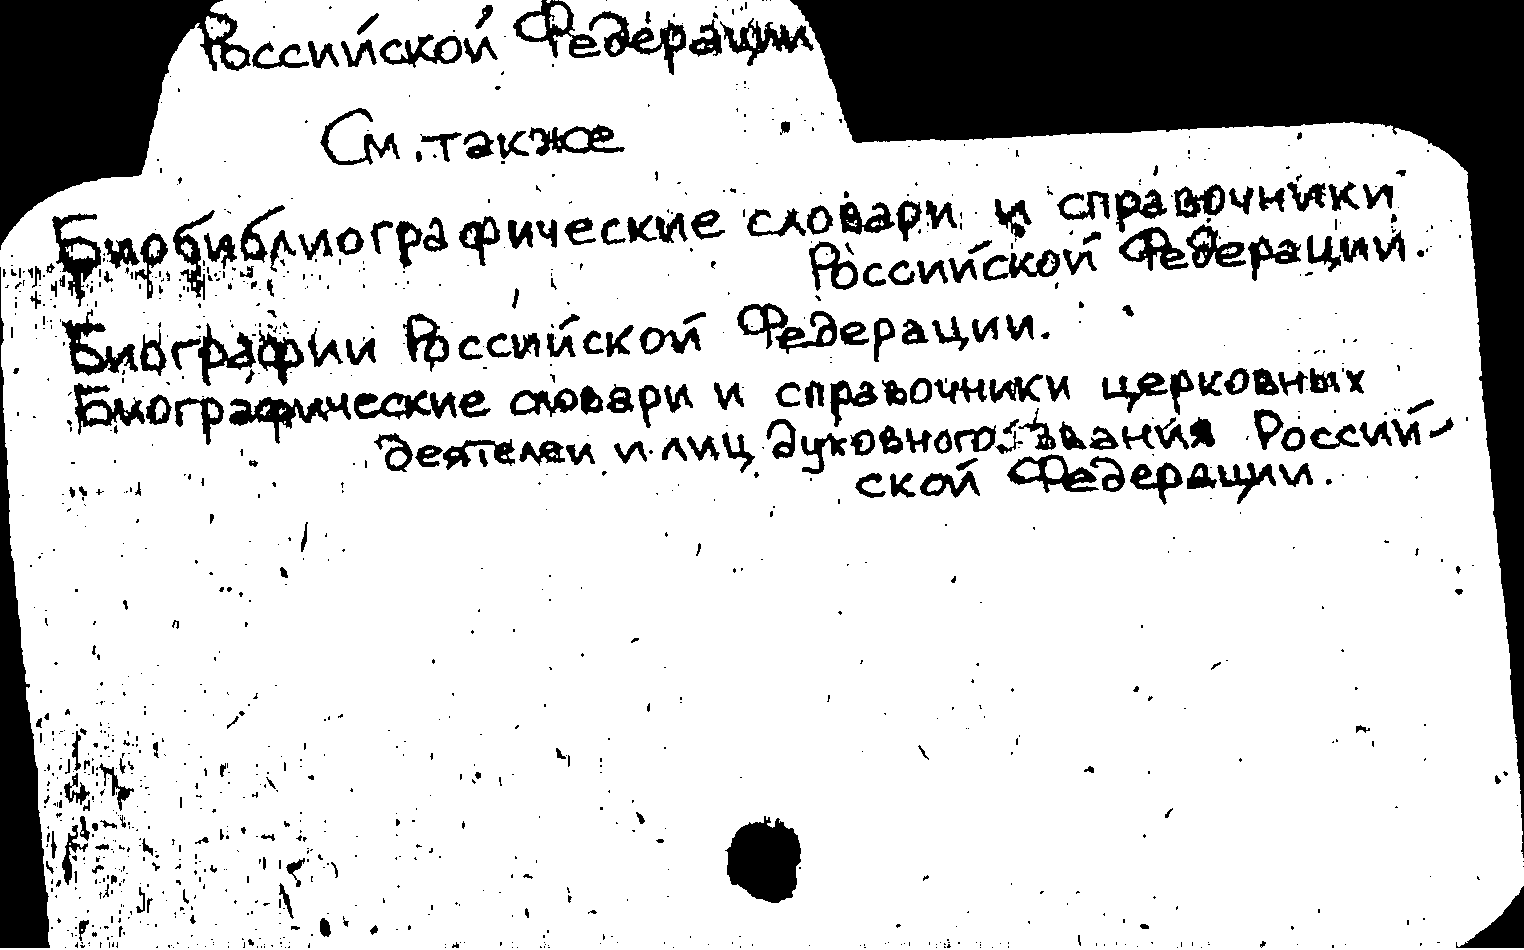 Российской Федерации
См. также
Биобиблиографические словари и справочники
Российской Федерации.
Биографии Российской Федерации.
Биографические словари и справочники церковных
деятелей и лиц духовного звания Россий-
ской Федерации.